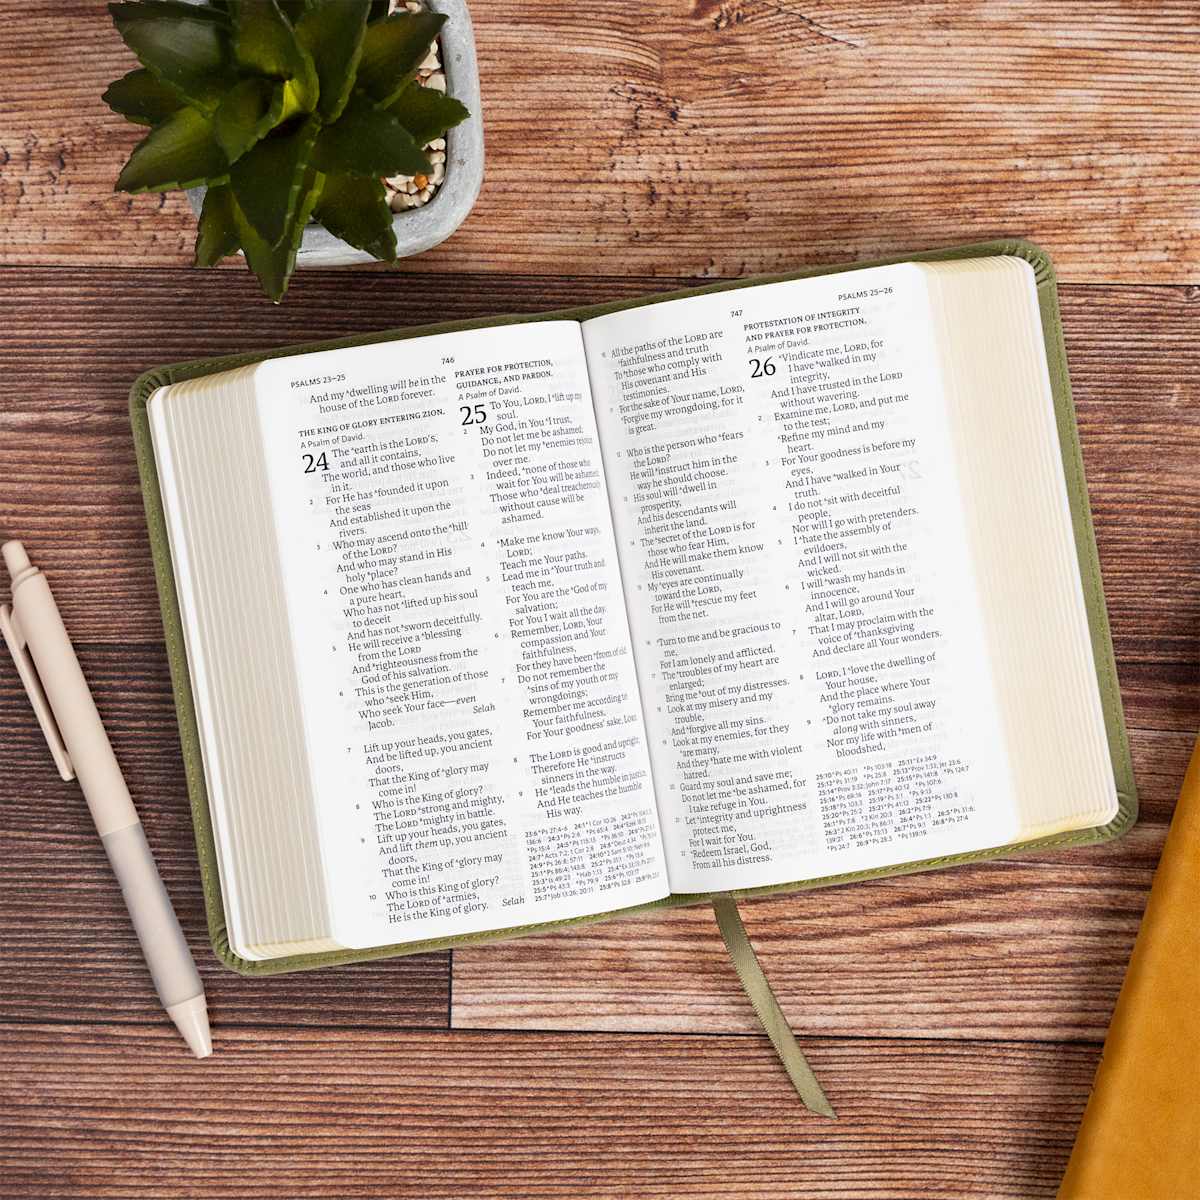 746
PSALMS 23–25
And my ᴬdwelling will be in the
house of the LORD forever.
THE KING OF GLORY ENTERING ZION.
A Psalm of David.
24 The ᴬearth is the LORD'S,
and all it contains,
The world, and those who live
in it.
2 For He has ᴬfounded it upon
the seas
And established it upon the
rivers.
3 Who may ascend onto the ᴬhill
of the LORD?
And who may stand in His
holy ᴮplace?
4 One who has clean hands and
a pure heart,
Who has not ᴬlifted up his soul
to deceit
And has not ᴮsworn deceitfully.
5 He will receive a ᴬblessing
from the LORD
And ᴮrighteousness from the
God of his salvation.
6 This is the generation of those
who ᴬseek Him,
Who seek Your face—even
Jacob. Selah
7 Lift up your heads, you gates,
And be lifted up, you ancient
doors,
That the King of ᴬglory may
come in!
8 Who is the King of glory?
The LORD ᴬstrong and mighty,
The LORD ᴮmighty in battle.
9 Lift up your heads, you gates,
And lift them up, you ancient
doors,
That the King of ᴬglory may
come in!
10 Who is this King of glory?
The LORD of ᴬarmies,
He is the King of glory. Selah
PRAYER FOR PROTECTION,
GUIDANCE, AND PARDON.
A Psalm of David.
25 To You, LORD, I ᴬlift up my
soul.
2 My God, in You ᴬI trust,
Do not let me be ashamed;
Do not let my ᴮenemies rejoice
over me.
3 Indeed, ᴬnone of those who
wait for You will be ashamed;
Those who ᴮdeal treacherously
without cause will be
ashamed.
4 ᴬMake me know Your ways,
LORD;
Teach me Your paths.
5 Lead me in ᴬYour truth and
teach me,
For You are the ᴮGod of my
salvation;
For You I wait all the day.
6 Remember, LORD, Your
compassion and Your
faithfulness,
For they have been ᴬfrom of old.
7 Do not remember the
ᴬsins of my youth or my
wrongdoings;
Remember me according to
Your faithfulness,
For Your goodness' sake, LORD.
8 The LORD is good and upright;
Therefore He ᴬinstructs
sinners in the way.
9 He ᴬleads the humble in justice,
And He teaches the humble
His way.
747
PSALMS 25–26
10 All the paths of the LORD are
ᴬfaithfulness and truth
To ᴮthose who comply with
His covenant and His
testimonies.
11 For the sake of Your name, LORD,
ᴬForgive my wrongdoing, for it
is great.
12 Who is the person who ᴬfears
the LORD?
He will ᴮinstruct him in the
way he should choose.
13 His soul will ᴬdwell in
prosperity,
And his descendants will
inherit the land.
14 The ᴬsecret of the LORD is for
those who fear Him,
And He will make them know
His covenant.
15 My ᴬeyes are continually
toward the LORD,
For He will ᴮrescue my feet
from the net.
16 ᴬTurn to me and be gracious to
me,
For I am lonely and afflicted.
17 The ᴬtroubles of my heart are
enlarged;
Bring me ᴮout of my distresses.
18 Look at my misery and my
trouble,
And ᴬforgive all my sins.
19 Look at my enemies, for they
ᴬare many,
And they ᴮhate me with violent
hatred.
20 Guard my soul and save me;
Do not let me ᴬbe ashamed, for
I take refuge in You.
21 Let ᴬintegrity and uprightness
protect me,
For I wait for You.
22 ᴬRedeem Israel, God,
From all his distress.
PROTESTATION OF INTEGRITY
AND PRAYER FOR PROTECTION.
A Psalm of David.
26 ᴬVindicate me, LORD, for
I have ᴮwalked in my
integrity,
And I have trusted in the LORD
without wavering.
2 Examine me, LORD, and put me
to the test;
ᴬRefine my mind and my
heart.
3 For Your goodness is before my
eyes,
And I have ᴬwalked in Your
truth.
4 I do not ᴬsit with deceitful
people,
Nor will I go with pretenders.
5 I ᴬhate the assembly of
evildoers,
And I will not sit with the
wicked.
6 I will ᴬwash my hands in
innocence,
And I will go around Your
altar, LORD,
7 That I may proclaim with the
voice of ᴬthanksgiving
And declare all Your wonders.
8 LORD, I ᴬlove the dwelling of
Your house,
And the place where Your
ᴮglory remains.
9 ᴬDo not take my soul away
along with sinners,
Nor my life with ᴮmen of
bloodshed,